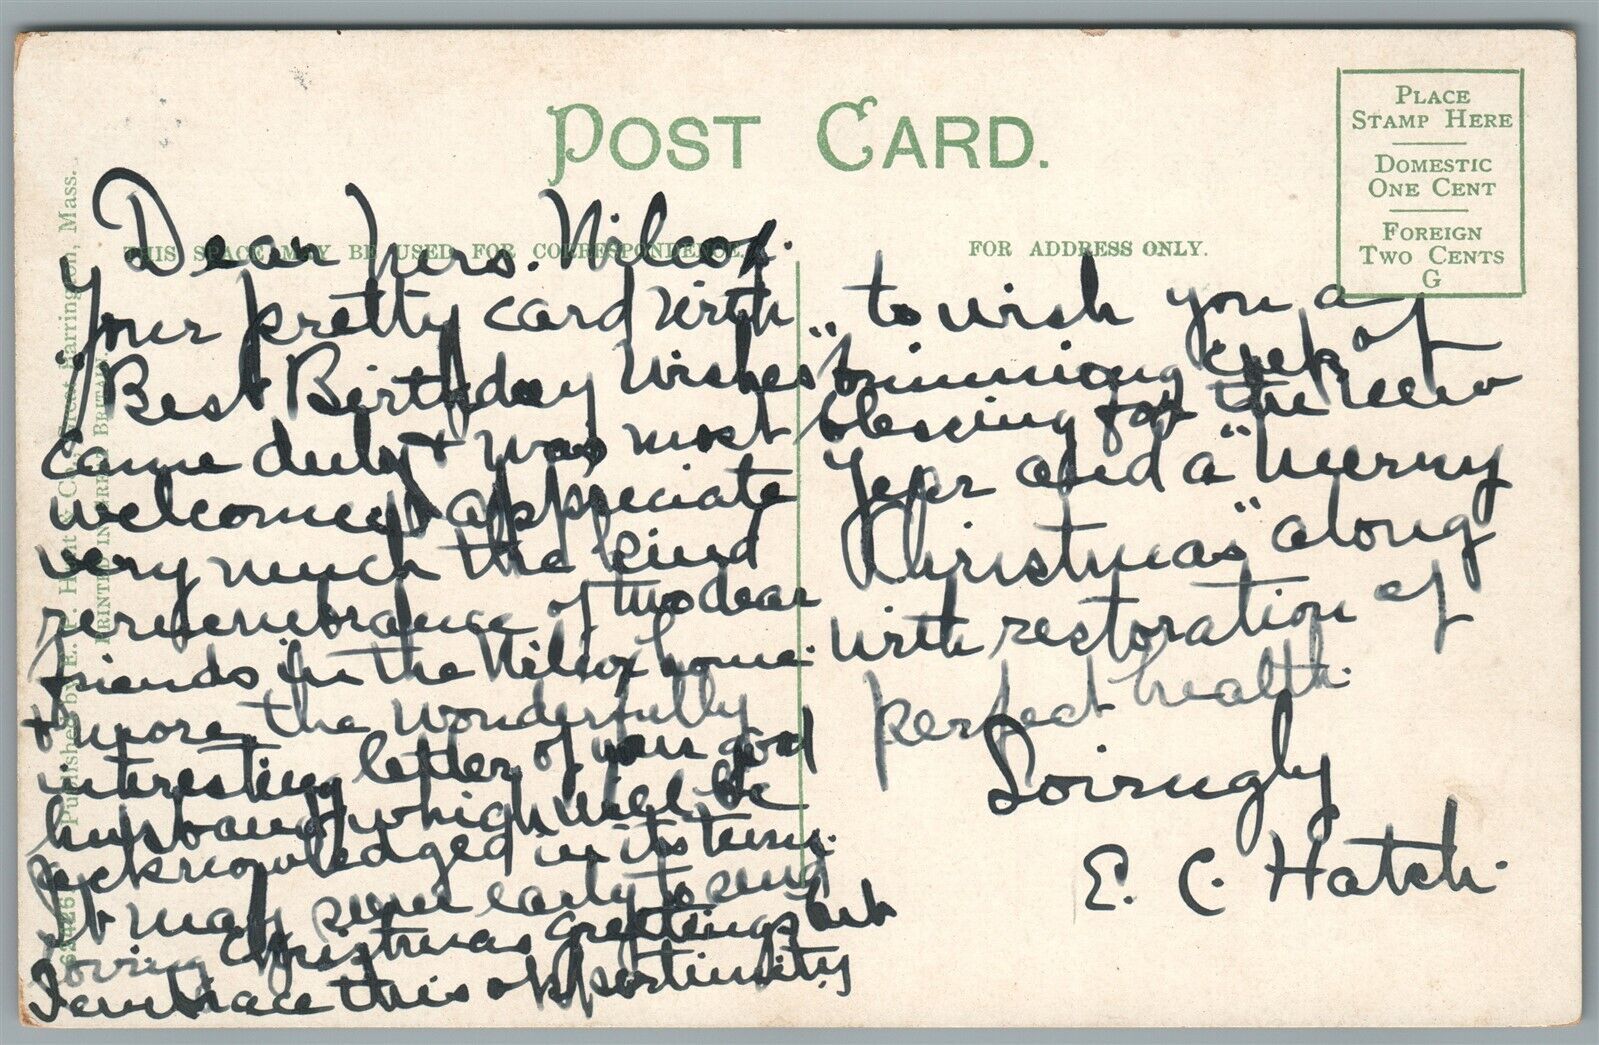 POST CARD.
PLACE
STAMP HERE
DOMESTIC
ONE CENT
FOREIGN
TWO CENTS
G
THIS SPACE MAY BE USED FOR CORRESPONDENCE.
FOR ADDRESS ONLY.
Dear Mrs. Wilcox.
Your pretty card with
"Best Birthday Wishes"
came duly & was most
welcome & appreciate
very much the kind
remembrance of two dear
friends in the Wilcox home.
& more, the wonderfully
interesting letter of your good
husband, which will be
acknowledged in its turn.
It may seem early to send
loving Christmas greetings but
I embrace this opportunity
to wish you a
brimming cup of
blessing for the new
Year and a "Merry
Christmas" along
with restoration of
perfect health.
Lovingly
E. C. Hatch.
Published by E. P. Hunt & Co., Great Barrington, Mass.
PRINTED IN GREAT BRITAIN.